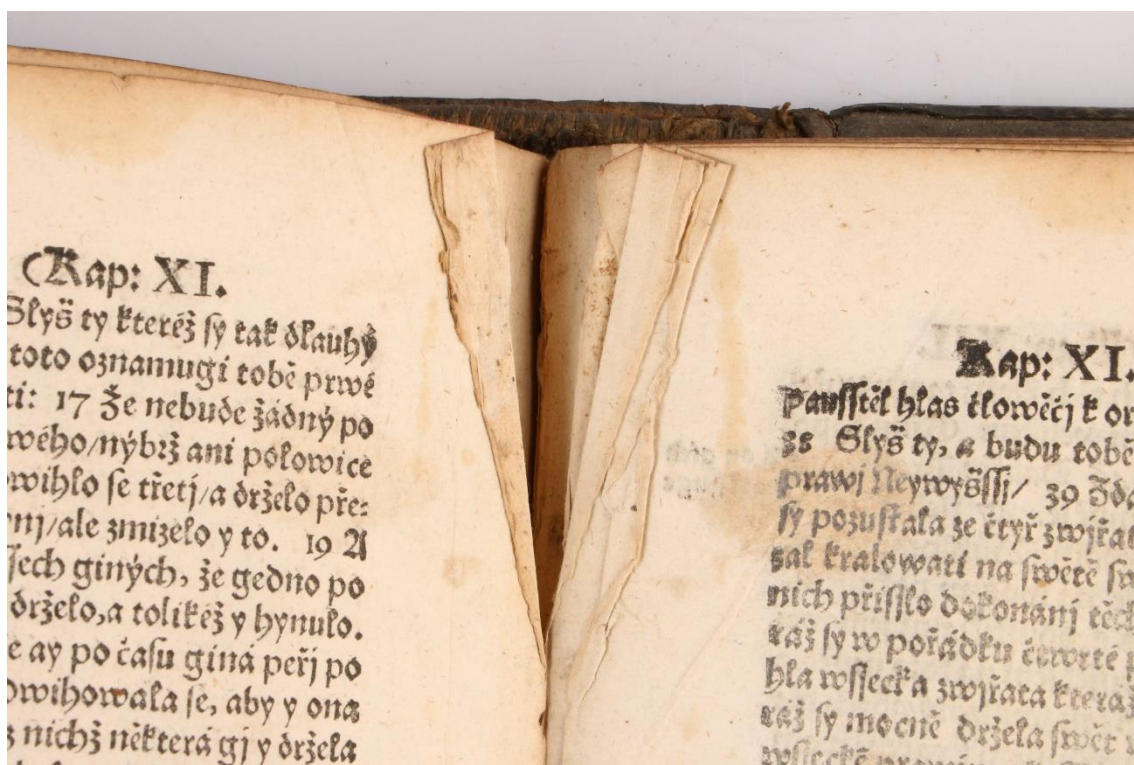 Kap: XI.
Slyš ty kteréž sy tak dlauhý
toto oznamugi tobě prwé
ti: 17 Že nebude žádný po
wého/nýbrž ani polowice
wihlo se třetj/a drželo pře-
nj/ale zmizelo y to. 19 A
ssech giných, že gedno po
drželo,a tolikéž y hynulo.
e ay po času giná peřj po
zwihowala se, aby y ona
z nichž některá gj y držela
Kap: XI.
pausstěl hlas člowěčj k
38 Slyš ty, a budu tobě
prawj Neywyšssj/ 39
sy pozustala ze čtyř zwjřat
sal kralowati na swětě
nich přisslo dokonánj
ráž sy w pořádku čtwrté
hla wssecka zwjřata kteráž
ráž sy mocně držela swět
wssecké